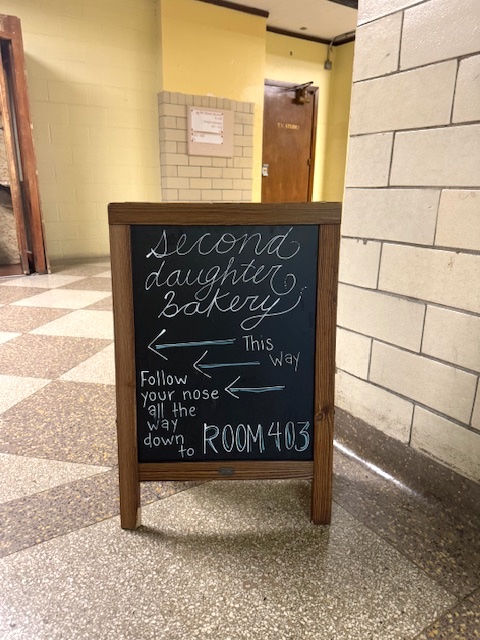 second
daughter
bakery
This
way
Follow
your nose
all the
way
down
to
ROOM 403